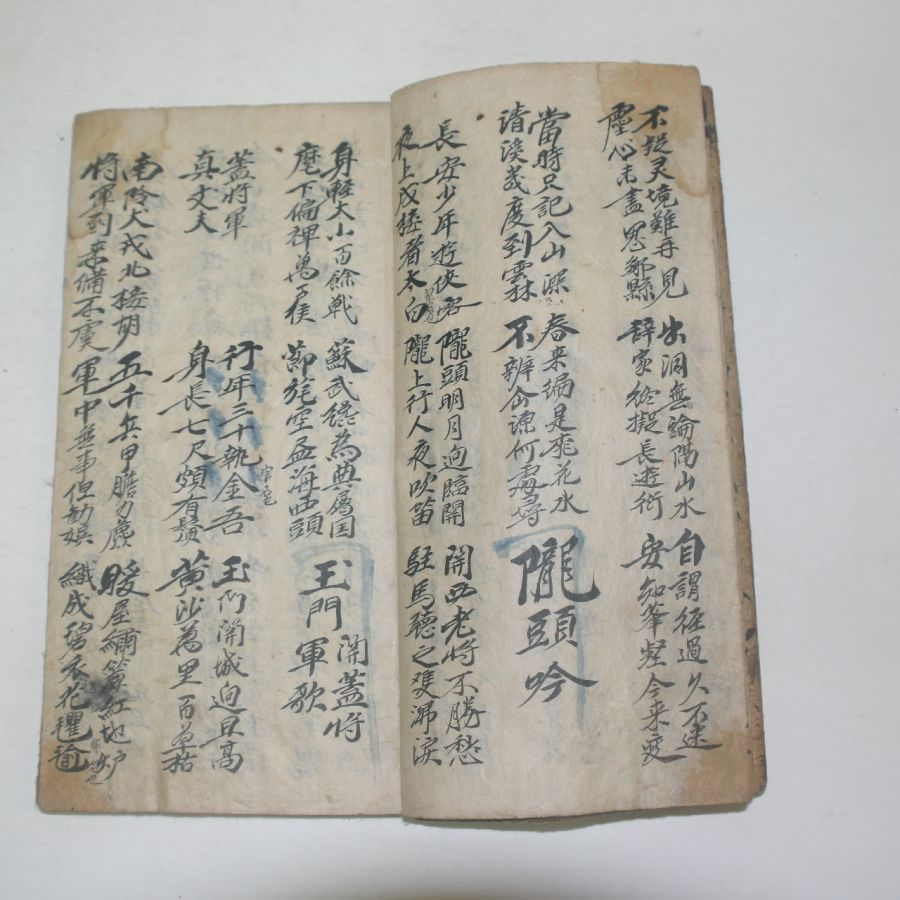 不疑灵境難再見
塵心未盡思鄕縣
出洞無論隔山水
辞家終擬長遊衍
自謂經過久不迷
安知峯壑今来変
當時只記入山深
清溪幾度到雲林
春来徧是桃花水
不辨仚源何處尋
隴頭吟
長安少年遊俠客
夜上戍楼看太白
隴頭明月逈臨關
隴上行人夜吹笛
関西老將不勝愁
駐馬聽之双涕淚
身輕大小百餘戰
麾下偏裨萬戶侯
蘇武終為典屬国
節旄空盡海西頭
玉門関蓋將軍歌
蓋將軍
真丈夫
行年三十執金吾
官名
身長七尺頗有鬚
玉门関城逈且高
黃沙萬里百草枯
南阾犬戎北接胡
將軍到来備不虞
五千兵甲膽力麁
軍中無事但歡娯
暖屋繡簾紅地炉
織成壁衣花氍毹